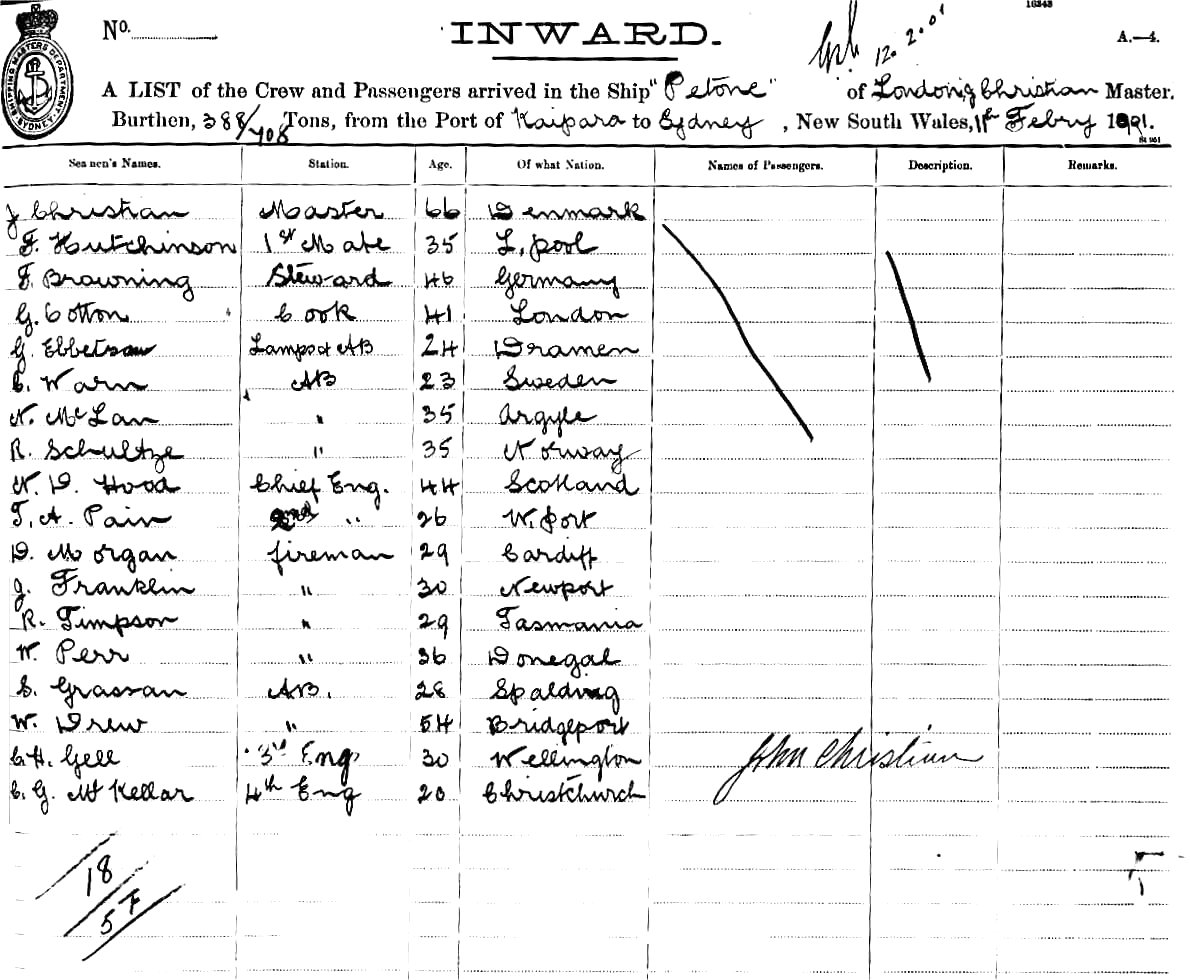 16343
No. INWARD. 12.2.01 A.—4.
SHIPPING MASTERS DEPARTMENT SYDNEY
A LIST of the Crew and Passengers arrived in the Ship "Petone" of London, J Christian Master.
Burthen, 388/708 Tons, from the Port of Kaipara to Sydney, New South Wales, 11th Febry 1901.
Seamen's Names. Station. Age. Of what Nation. Names of Passengers. Description. Remarks.
J Christian Master 66 Denmark
F. Hutchinson 1st Mate 35 L,pool
F. Browning Steward 46 Germany
G. Cotton Cook 41 London
G. Ebbetsen Lamps & AB 24 Dramen
C. Warn AB 23 Sweden
N. McLan " 35 Argyle
R. Schultze " 35 Norway
N. D. Hood Chief Eng. 44 Scotland
T. A. Pain 2nd " 26 W,port
D. Morgan fireman 29 Cardiff
J. Franklin " 30 Newport
R. Timpson " 29 Tasmania
W. Perr " 36 Donegal
C. Grassan AB. 28 Spalding
W. Drew " 54 Bridgeport
C.H. Gell 3rd Eng. 30 Wellington
C. G. McKellar 4th Eng 20 Christchurch
John Christian
18
5 F